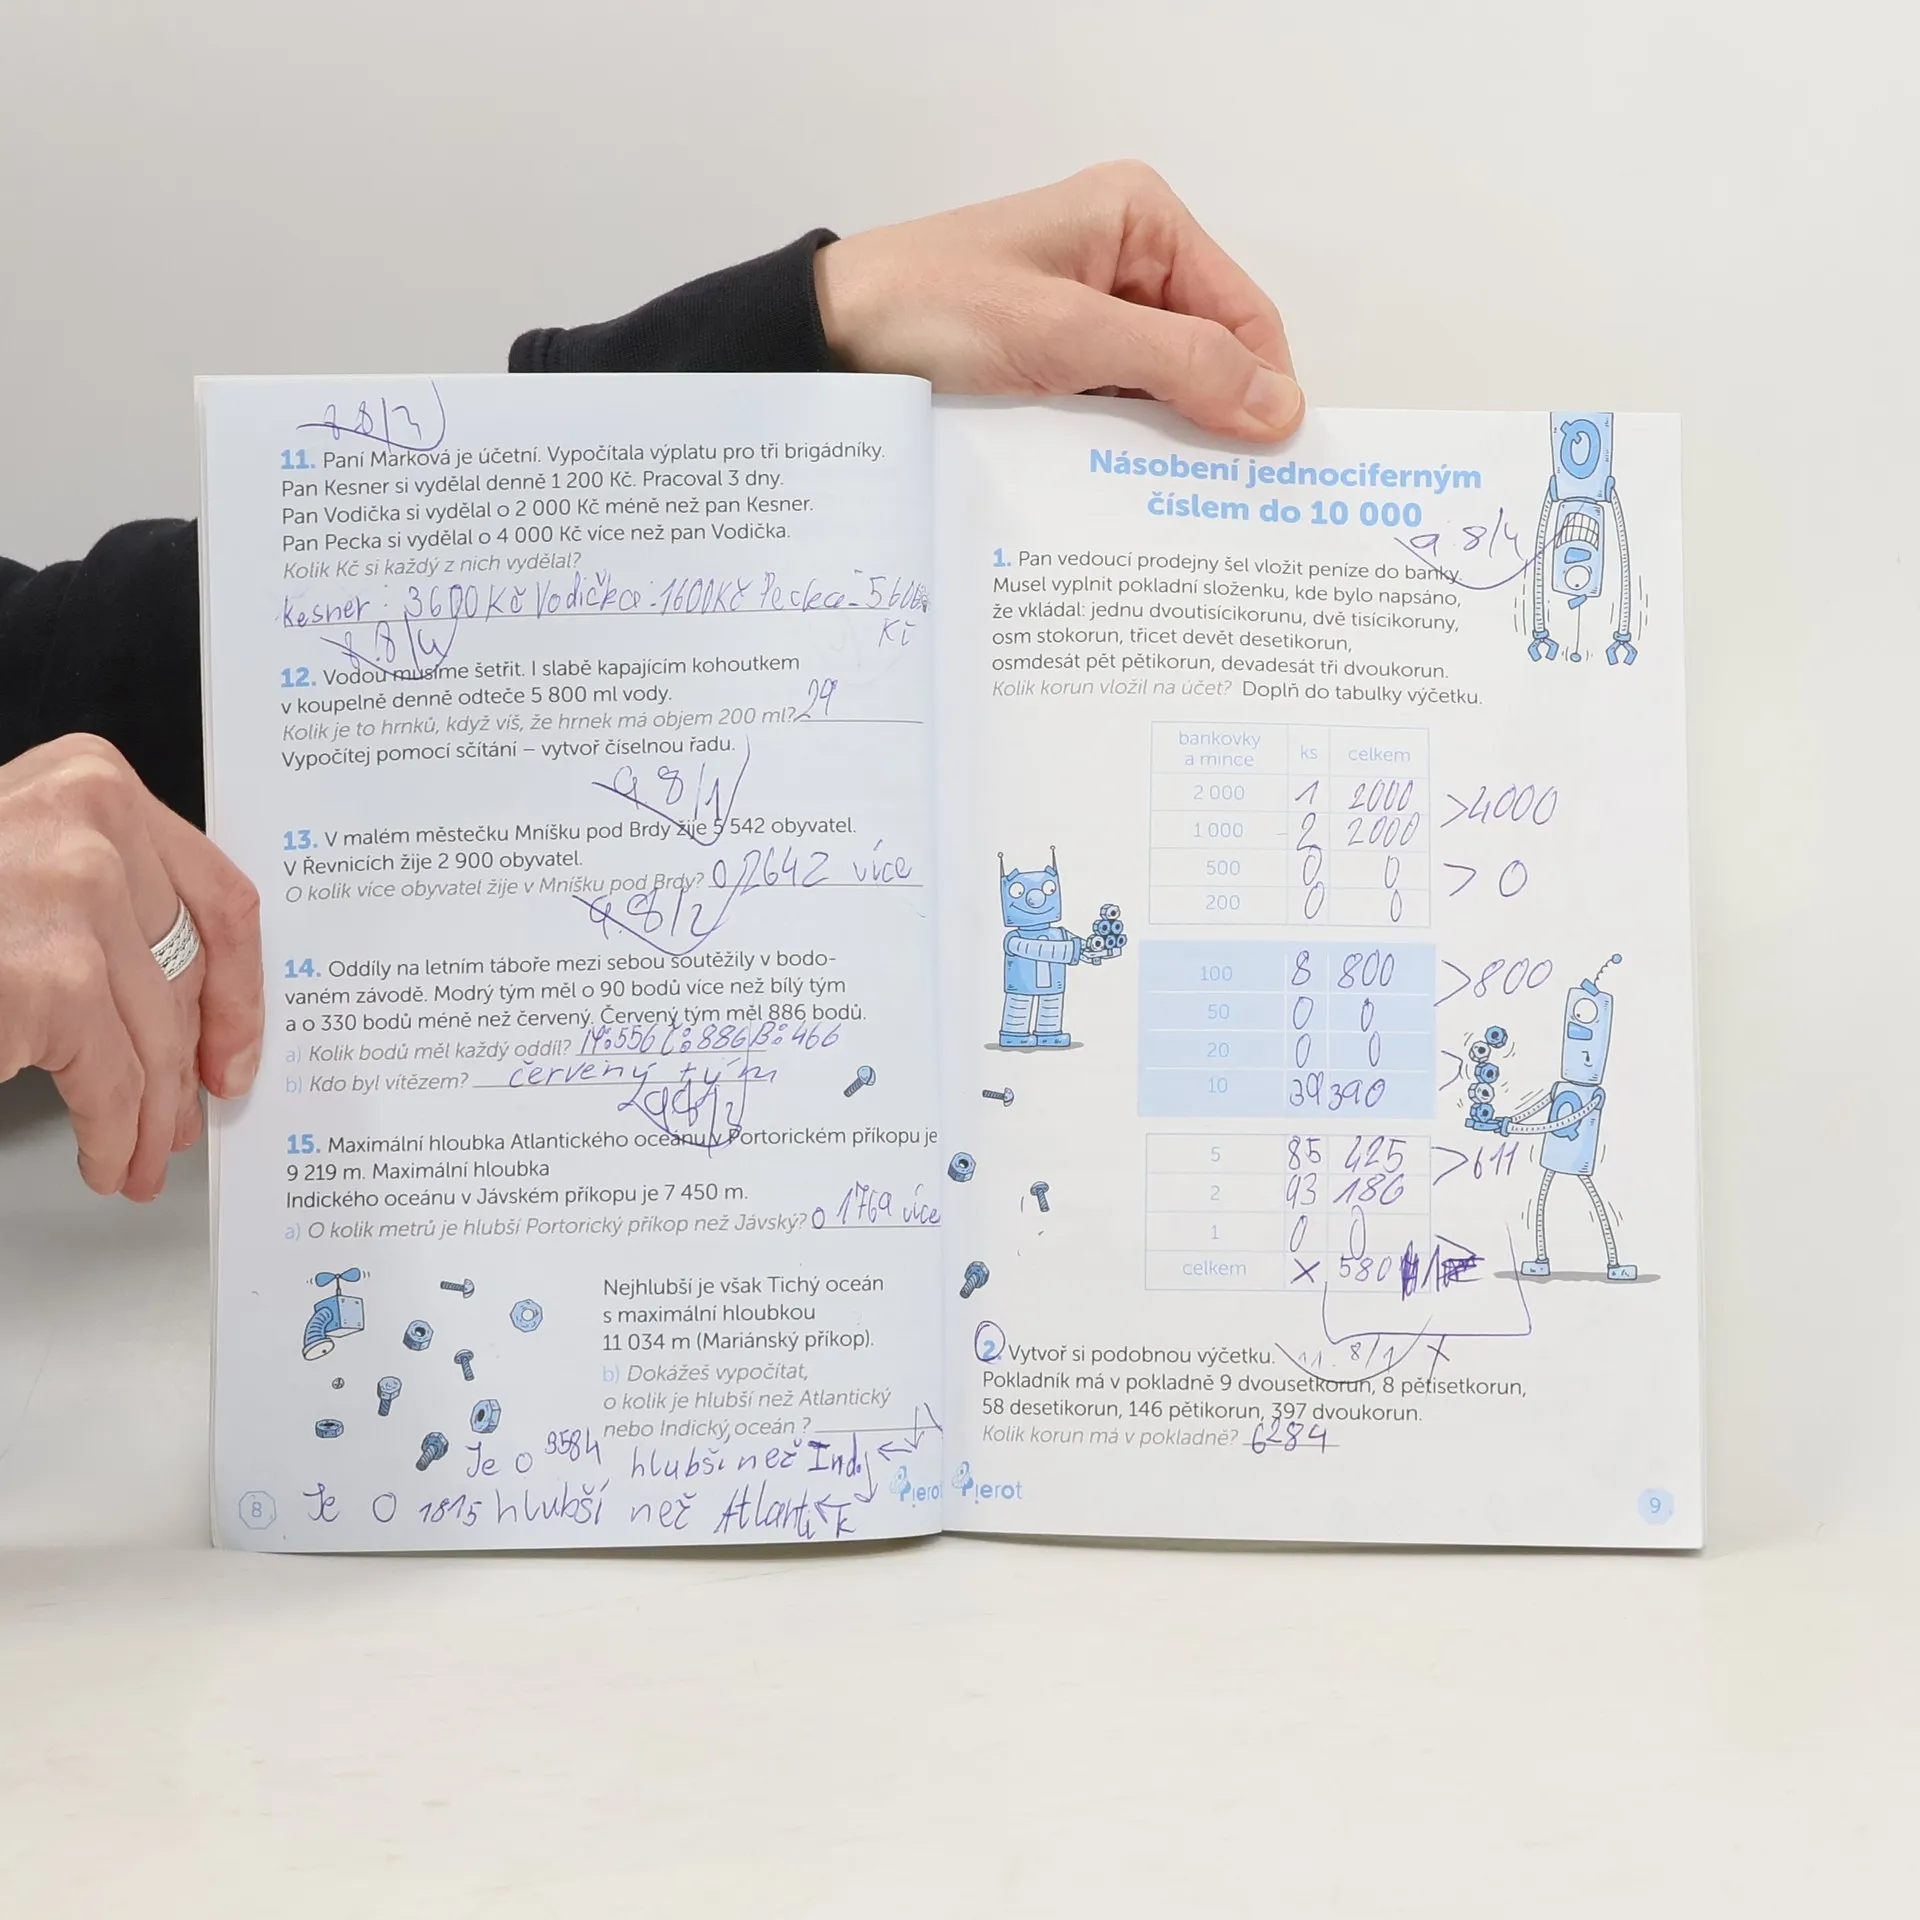 8.8/3
11. Paní Marková je účetní. Vypočítala výplatu pro tři brigádníky.
Pan Kesner si vydělal denně 1 200 Kč. Pracoval 3 dny.
Pan Vodička si vydělal o 2 000 Kč méně než pan Kesner.
Pan Pecka si vydělal o 4 000 Kč více než pan Vodička.
Kolik Kč si každý z nich vydělal?
Kesner: 3600 Kč Vodička - 1600 Kč Pecka - 5600
Kč
8.8/4
12. Vodou musíme šetřit. I slabě kapajícím kohoutkem
v koupelně denně odteče 5 800 ml vody.
Kolik je to hrnků, když víš, že hrnek má objem 200 ml? 29
Vypočítej pomocí sčítání – vytvoř číselnou řadu.
9.8/1
13. V malém městečku Mníšku pod Brdy žije 5 542 obyvatel.
V Řevnicích žije 2 900 obyvatel.
O kolik více obyvatel žije v Mníšku pod Brdy? O 2642 více
9.8/2
14. Oddíly na letním táboře mezi sebou soutěžily v bodo-
vaném závodě. Modrý tým měl o 90 bodů více než bílý tým
a o 330 bodů méně než červený. Červený tým měl 886 bodů.
a) Kolik bodů měl každý oddíl? M: 556 Č: 886 B: 466
b) Kdo byl vítězem? červený tým
15. Maximální hloubka Atlantického oceánu v Portorickém příkopu je
9 219 m. Maximální hloubka
Indického oceánu v Jávském příkopu je 7 450 m.
a) O kolik metrů je hlubší Portorický příkop než Jávský? o 1769 více
Nejhlubší je však Tichý oceán
s maximální hloubkou
11 034 m (Mariánský příkop).
b) Dokážeš vypočítat,
o kolik je hlubší než Atlantický
nebo Indický oceán ?
Je o 3584 hlubší než Ind.
Je O 1815 hlubší než Atlantik
Pierot
8
Násobení jednociferným
číslem do 10 000
9.8/4
1. Pan vedoucí prodejny šel vložit peníze do banky.
Musel vyplnit pokladní složenku, kde bylo napsáno,
že vkládal: jednu dvoutisícikorunu, dvě tisícikoruny,
osm stokorun, třicet devět desetikorun,
osmdesát pět pětikorun, devadesát tři dvoukorun.
Kolik korun vložil na účet? Doplň do tabulky výčetku.
bankovky a mince ks celkem
2 000 1 2000 >4000
1 000 2 2000
500 0 0 >0
200 0 0
100 8 800 >800
50 0 0
20 0 0 >
10 39 390
5 85 425 >611
2 93 186
1 0 0
celkem X 580
2. Vytvoř si podobnou výčetku. 11. 8/1 X
Pokladník má v pokladně 9 dvousetkorun, 8 pětisetkorun,
58 desetikorun, 146 pětikorun, 397 dvoukorun.
Kolik korun má v pokladně? 6284
Pierot
9